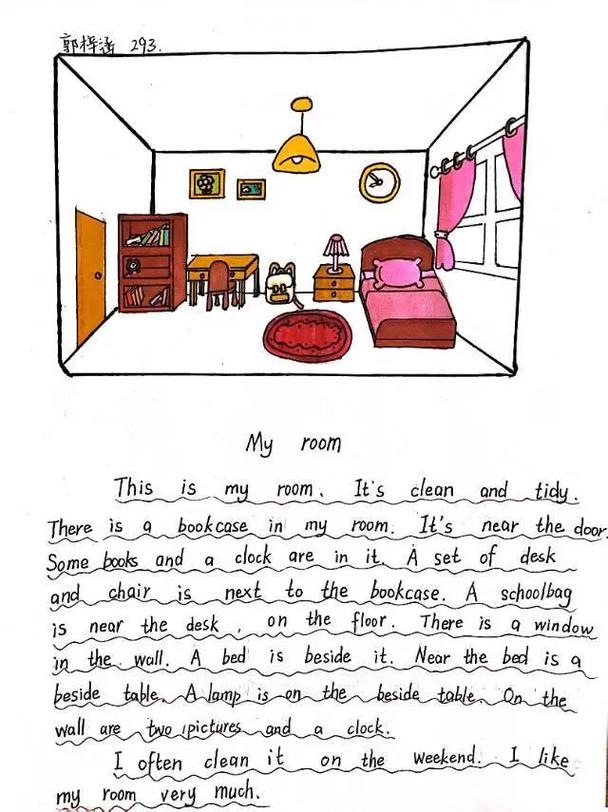 郭梓涵 293.
My room
This is my room. It's clean and tidy.
There is a bookcase in my room. It's near the door.
Some books and a clock are in it. A set of desk
and chair is next to the bookcase. A schoolbag
is near the desk, on the floor. There is a window
in the wall. A bed is beside it. Near the bed is a
beside table. A lamp is on the beside table. On the
wall are two pictures and a clock.
I often clean it on the weekend. I like
my room very much.